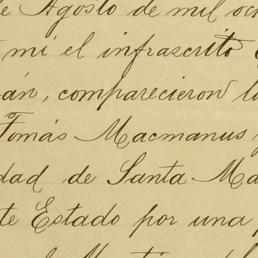 e Agosto de mil oc
mi el infrascrito
án, comparecieron l
Tomás Macmanus y
dad de Santa Ma
te Estado por una